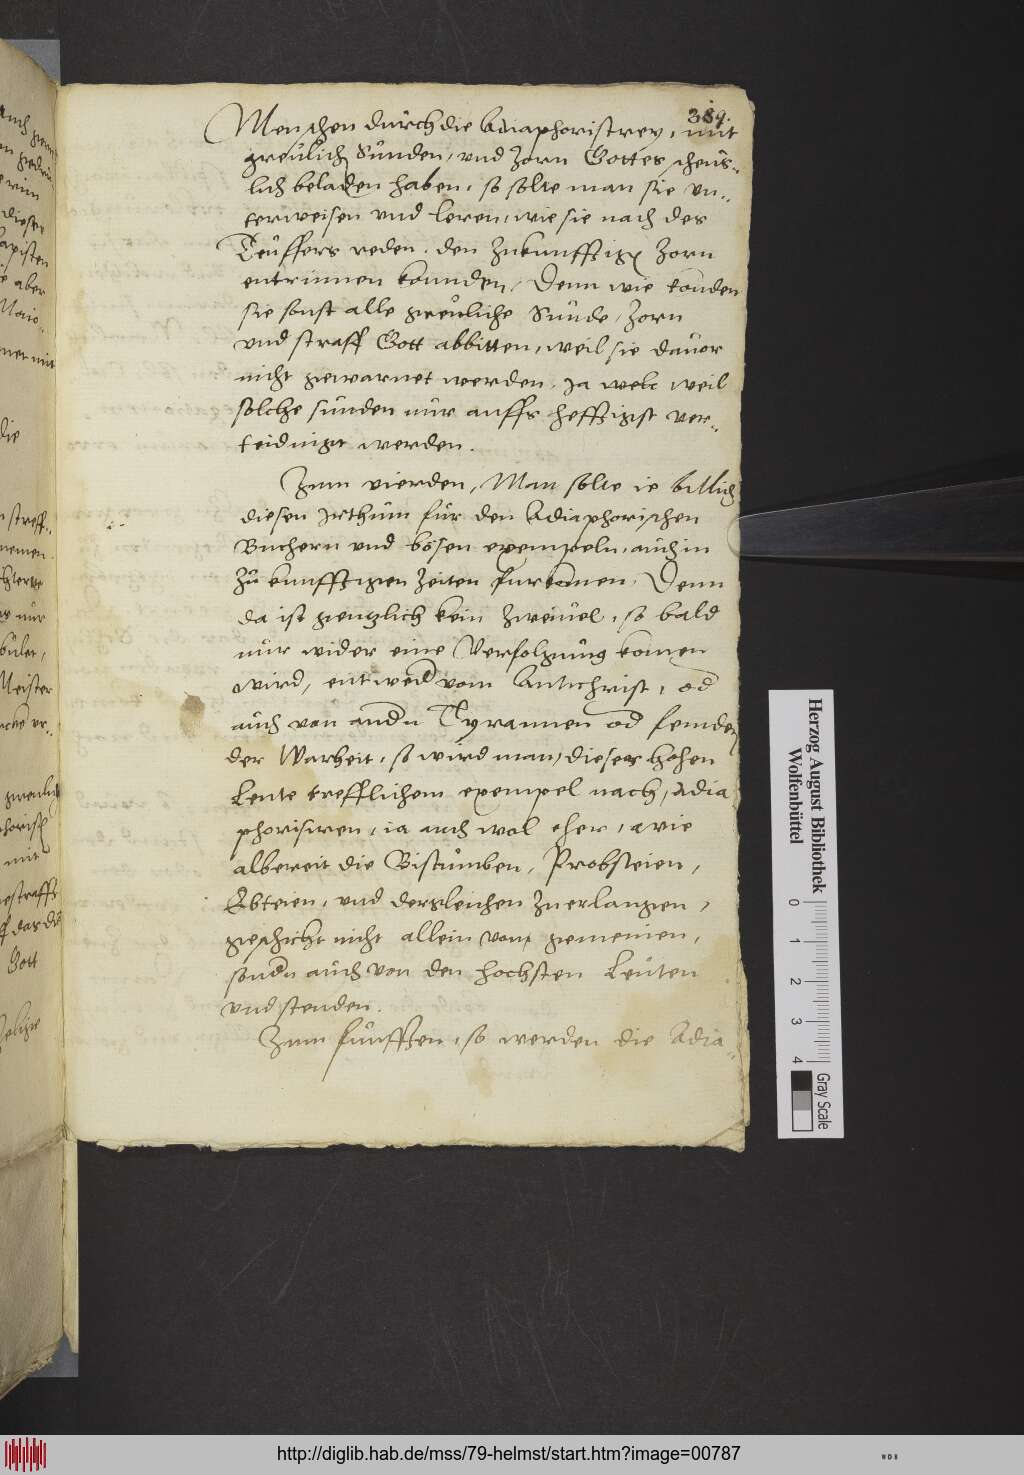 389.
Menschen durch die Adiaphoristrey, mit
greulich Sunden, und Zorn Gottes scheus-
lich beladen haben, so solte man sie un-
terweisen und leren, wie sie nach des
Teuffers reden, den Zukunfftign Zorn
entrinnen konnden, Denn wie konden
sie sonst alle greuliche Sunde, Zorn
und straff Gott abbitten, weil sie davor
nicht gewarnet werden, Ja weil
solche sunden nur auffs hefftigst ver-
teidingt werden.
Zum vierden, Man solte ie billich
diesen Jrthum fur den Adiaphorischen
Buchern und bosen exempeln, auch in
zukunfftigen Zeiten furkomen, Denn
da ist gentzlich kein Zweivel, so bald
nur wider eine Verfolgung komen
wird, entwed vom Antichrist, od
auch von andn Tyrannen od feinden
der Warheit, so wird man, dieser hohen
Leute trefflichem exempel nach, Adia
phorisiren, ia auch wol eher, wie
albereit die Bistumben, Probsteien,
Ebteien, und dergleichen Zuerlangen,
geschicht nicht allein vom gemeinen,
sondn auch von den hochsten Leuten
und stenden.
Zum funfften, so werden die Adia-
die
dieser
aber
nur
Meister
mit
Gott
Herzog August Bibliothek
Wolfenbüttel
0 1 2 3 4
Gray Scale
http://diglib.hab.de/mss/79-helmst/start.htm?image=00787
WDB